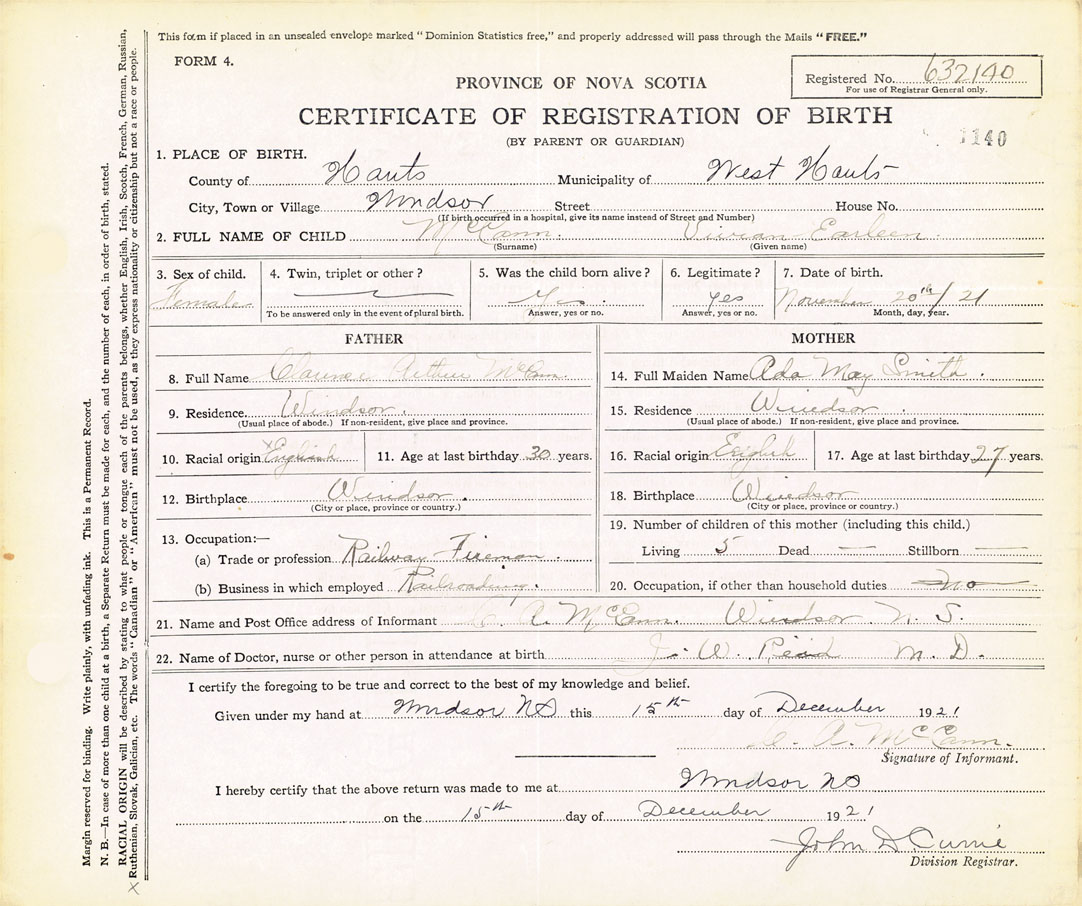 This form if placed in an unsealed envelope marked "Dominion Statistics free," and properly addressed will pass through the Mails "FREE."
FORM 4.
Registered No. 632140
For use of Registrar General only.
PROVINCE OF NOVA SCOTIA
CERTIFICATE OF REGISTRATION OF BIRTH
(BY PARENT OR GUARDIAN)
1140
1. PLACE OF BIRTH.
County of Hants Municipality of West Hants
City, Town or Village Windsor Street House No.
(If birth occurred in a hospital, give its name instead of Street and Number)
2. FULL NAME OF CHILD McCann. Vivian Earleen.
(Surname) (Given name)
3. Sex of child. 4. Twin, triplet or other? 5. Was the child born alive? 6. Legitimate? 7. Date of birth.
Female Yes. Yes November 20th/21
To be answered only in the event of plural birth. Answer, yes or no. Answer, yes or no. Month, day, year.
FATHER
8. Full Name Clarence Arthur McCann.
9. Residence. Windsor.
(Usual place of abode.) If non-resident, give place and province.
10. Racial origin English 11. Age at last birthday 30 years.
12. Birthplace Windsor.
(City or place, province or country.)
13. Occupation:—
(a) Trade or profession Railway Fireman
(b) Business in which employed Railroading.
MOTHER
14. Full Maiden Name Ada May Smith.
15. Residence Windsor.
(Usual place of abode.) If non-resident, give place and province.
16. Racial origin English 17. Age at last birthday 27 years.
18. Birthplace Windsor
(City or place, province or country.)
19. Number of children of this mother (including this child.)
Living 5 Dead — Stillborn —
20. Occupation, if other than household duties No
21. Name and Post Office address of Informant C. A. McCann. Windsor N. S.
22. Name of Doctor, nurse or other person in attendance at birth J. W. Reid M. D.
I certify the foregoing to be true and correct to the best of my knowledge and belief.
Given under my hand at Windsor NS this 15th day of December 1921
C. A. McCann.
Signature of Informant.
I hereby certify that the above return was made to me at Windsor NS
on the 15th day of December 1921
John D Currie
Division Registrar.
Margin reserved for binding. Write plainly, with unfading ink. This is a Permanent Record.
N. B.—In case of more than one child at a birth, a Separate Return must be made for each, and the number of each, in order of birth, stated.
RACIAL ORIGIN will be described by stating to what people or tongue each of the parents belongs, whether English, Irish, Scotch, French, German, Russian,
Ruthenian, Slovak, Galician, etc. The words "Canadian" or "American" must not be used, as they express nationality or citizenship but not a race or people.
X